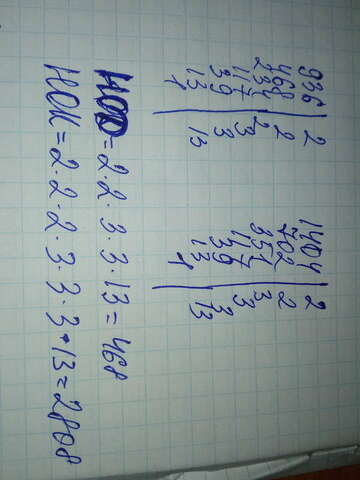 936 | 2 1404 | 2
468 | 2 702 | 2
234 | 2 351 | 3
117 | 3 117 | 3
39 | 3 39 | 3
13 | 13 13 | 13
1 1
НОД = 2·2·3·3·13 = 468
НОК = 2·2·2·3·3·3·13 = 2808